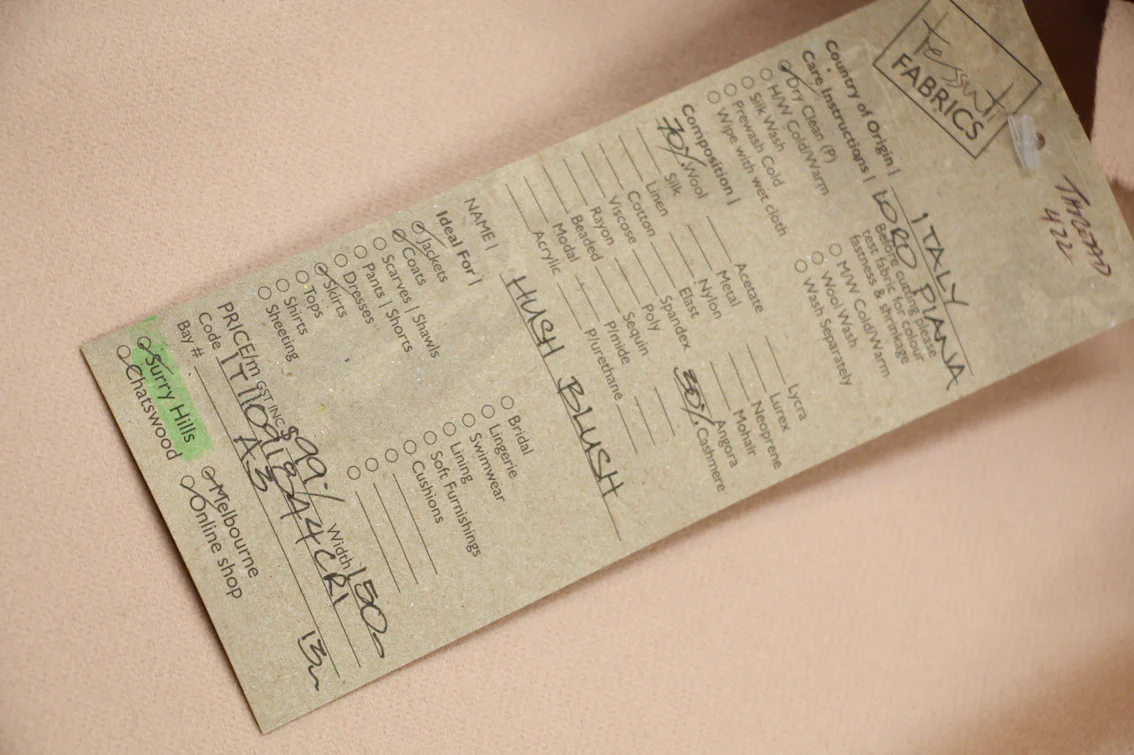 Tessuti
FABRICS
THREAD
422
Country of Origin | ITALY
Care Instructions | LORO PIANA
Dry Clean (P)
H/W Cold/Warm
Silk Wash
Prewash Cold
Wipe with wet cloth
Before cutting please
test fabric for colour
fastness & shrinkage
M/W Cold/Warm
Wool Wash
Wash Separately
Composition |
70% Wool
Silk
Linen
Cotton
Viscose
Rayon
Beaded
Modal
Acrylic
Acetate
Metal
Nylon
Elast
Spandex
Poly
Sequin
P/mide
P/urethane
Lycra
Lurex
Neoprene
Mohair
Angora
30% Cashmere
NAME | HUSH BLUSH
Ideal For |
Jackets
Coats
Scarves | Shawls
Pants | Shorts
Dresses
Skirts
Tops
Shirts
Sheeting
Bridal
Lingerie
Swimwear
Lining
Soft Furnishings
Cushions
PRICE/m GST INC $99.- Width 150
Code
Bay # A3 13m
Surry Hills
Chatswood
Melbourne
Online shop